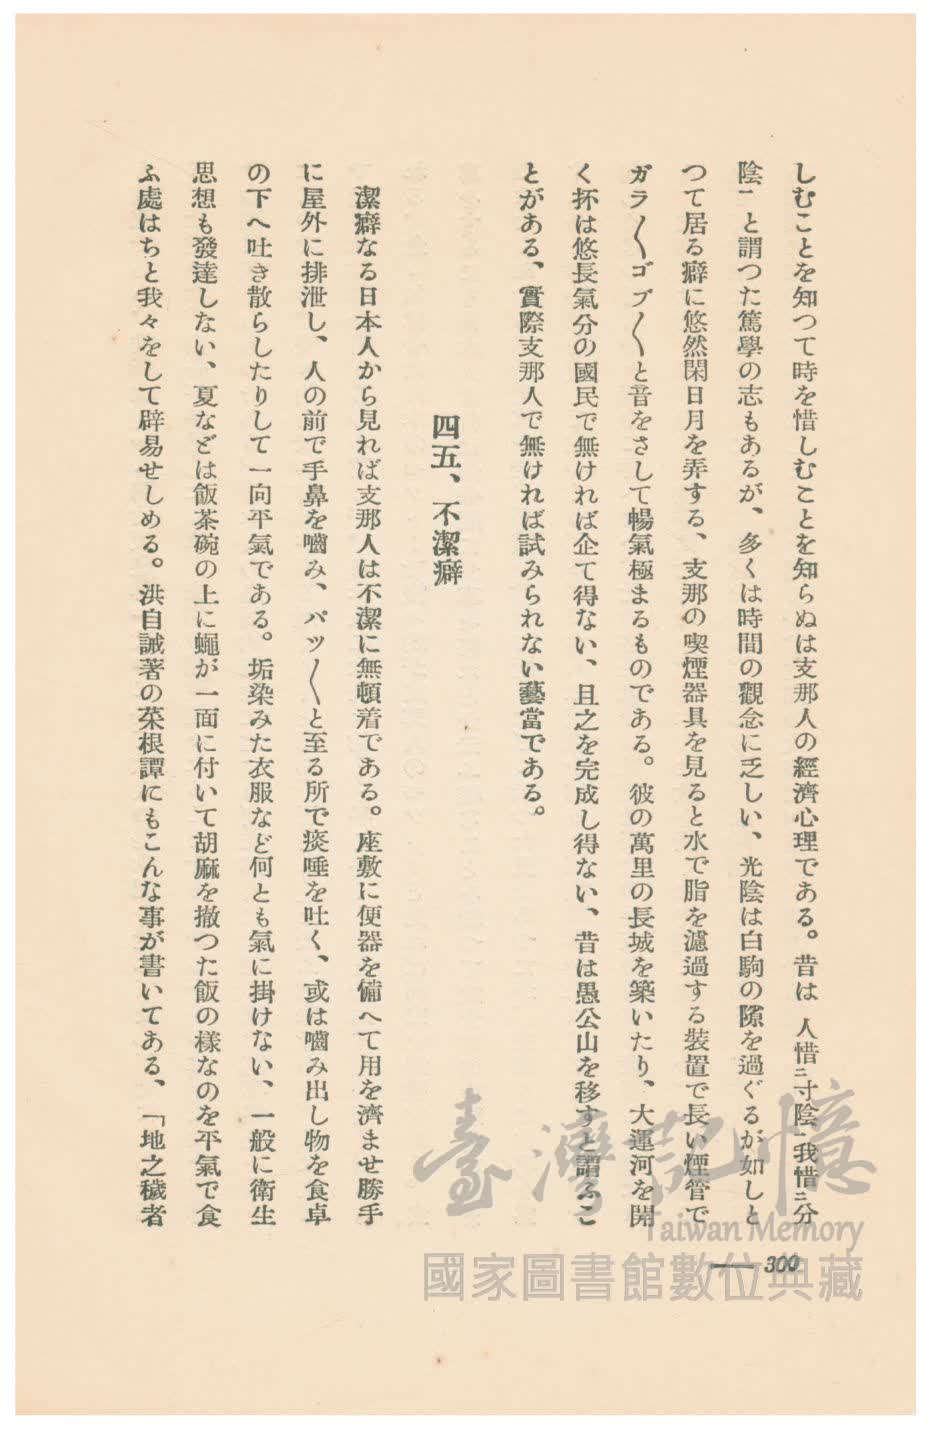 しむことを知つて時を惜しむことを知らぬは支那人の經濟心理である。昔は 人惜ニ寸陰一我惜ニ分
陰一と謂つた篤學の志もあるが、多くは時間の觀念に乏しい、光陰は白駒の隙を過ぐるが如しと
つて居る癖に悠然閑日月を弄する、支那の喫煙器具を見ると水で脂を濾過する裝置で長い煙管で
ガラ〳〵ゴブ〳〵と音をさして暢氣極まるものである。彼の萬里の長城を築いたり、大運河を開
く抔は悠長氣分の國民で無ければ企て得ない、且之を完成し得ない、昔は愚公山を移すと謂ふこ
とがある、實際支那人で無ければ試みられない藝當である。
四五、不潔癖
潔癖なる日本人から見れば支那人は不潔に無頓着である。座敷に便器を備へて用を濟ませ勝手
に屋外に排泄し、人の前で手鼻を嚙み、パツ〳〵と至る所で痰唾を吐く、或は嚙み出し物を食卓
の下へ吐き散らしたりして一向平氣である。垢染みた衣服など何とも氣に掛けない、一般に衛生
思想も發達しない、夏などは飯茶碗の上に蠅が一面に付いて胡麻を撒つた飯の樣なのを平氣で食
ふ處はちと我々をして辟易せしめる。洪自誠著の菜根譚にもこんな事が書いてある、「地之穢者
300
臺灣記憶
Taiwan Memory
國家圖書館數位典藏